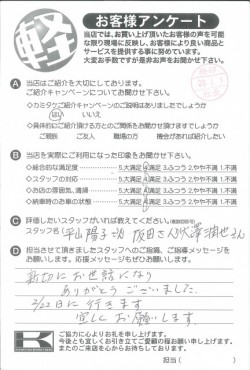 軽
お客様アンケート
当店では、お買い上げ頂いたお客様の声を可能
な限り現場に反映し、お客様により良い商品と
サービスを提供する事に努めています。
大変お手数ですが是非お声をお聞かせ下さい。
A 当店はご紹介を大切にしております。
ご紹介キャンペーンについてお聞かせ下さい。
◇カミタケご紹介キャンペーンのご説明はありましたでしょうか
はい いいえ
◇具体的にご紹介頂ける方とのご関係をお聞かせ頂けますでしょうか
ご親族 ご友人 職場の方 機会があれば紹介したい
B 当店を実際にご利用になった印象お聞かせ下さい。
◇総合的な満足度 5.大満足 4.満足 3.ふつう 2.やや不満 1.不満
◇スタッフの対応 5.大満足 4.満足 3.ふつう 2.やや不満 1.不満
◇お店の雰囲気、清掃 5.大満足 4.満足 3.ふつう 2.やや不満 1.不満
◇納車時のお車の状態 5.大満足 4.満足 3.ふつう 2.やや不満 1.不満
C 評価したいスタッフがいれば教えてください。
スタッフ名 平山陽子さん 阪田さん
D 担当させて頂きましたスタッフへのご指摘、ご指導メッセージを
お願いします。応援メッセージもぜひお願いします。
親切にお世話になり
ありがとうございました。
2/22日に行きます
宜しくお願いします。
K
ご協力に心よりお礼を申し上げます。
今後とも宜しくお引き立てご愛顧の程お願い申し上げます。
またのご来店を心からお待ちしております。
担当( )